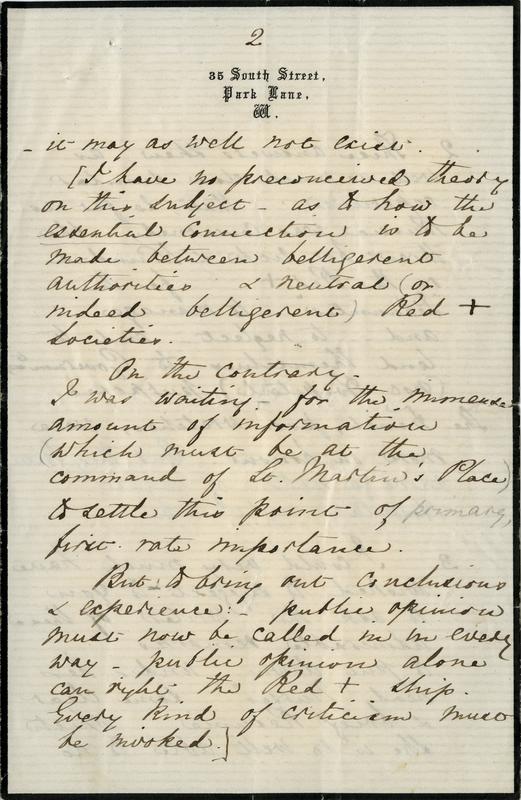 2
35 South Street,
Park Lane,
W.
- it may as well not exist.
[I have no preconceived theory
on this subject - as to how the
essential connection is to be
made between belligerent
authorities & neutral (or
indeed belligerent) Red +
Societies.
On the contrary -
I was waiting for the immense
amount of information
(which must be at the
command of St. Martin's Place)
to settle this point of primary,
first-rate importance.
But to bring out conclusions
& experience: - public opinion
must now be called in in every
way - public opinion alone
can right the Red + ship.
Every kind of criticism must
be invoked.]